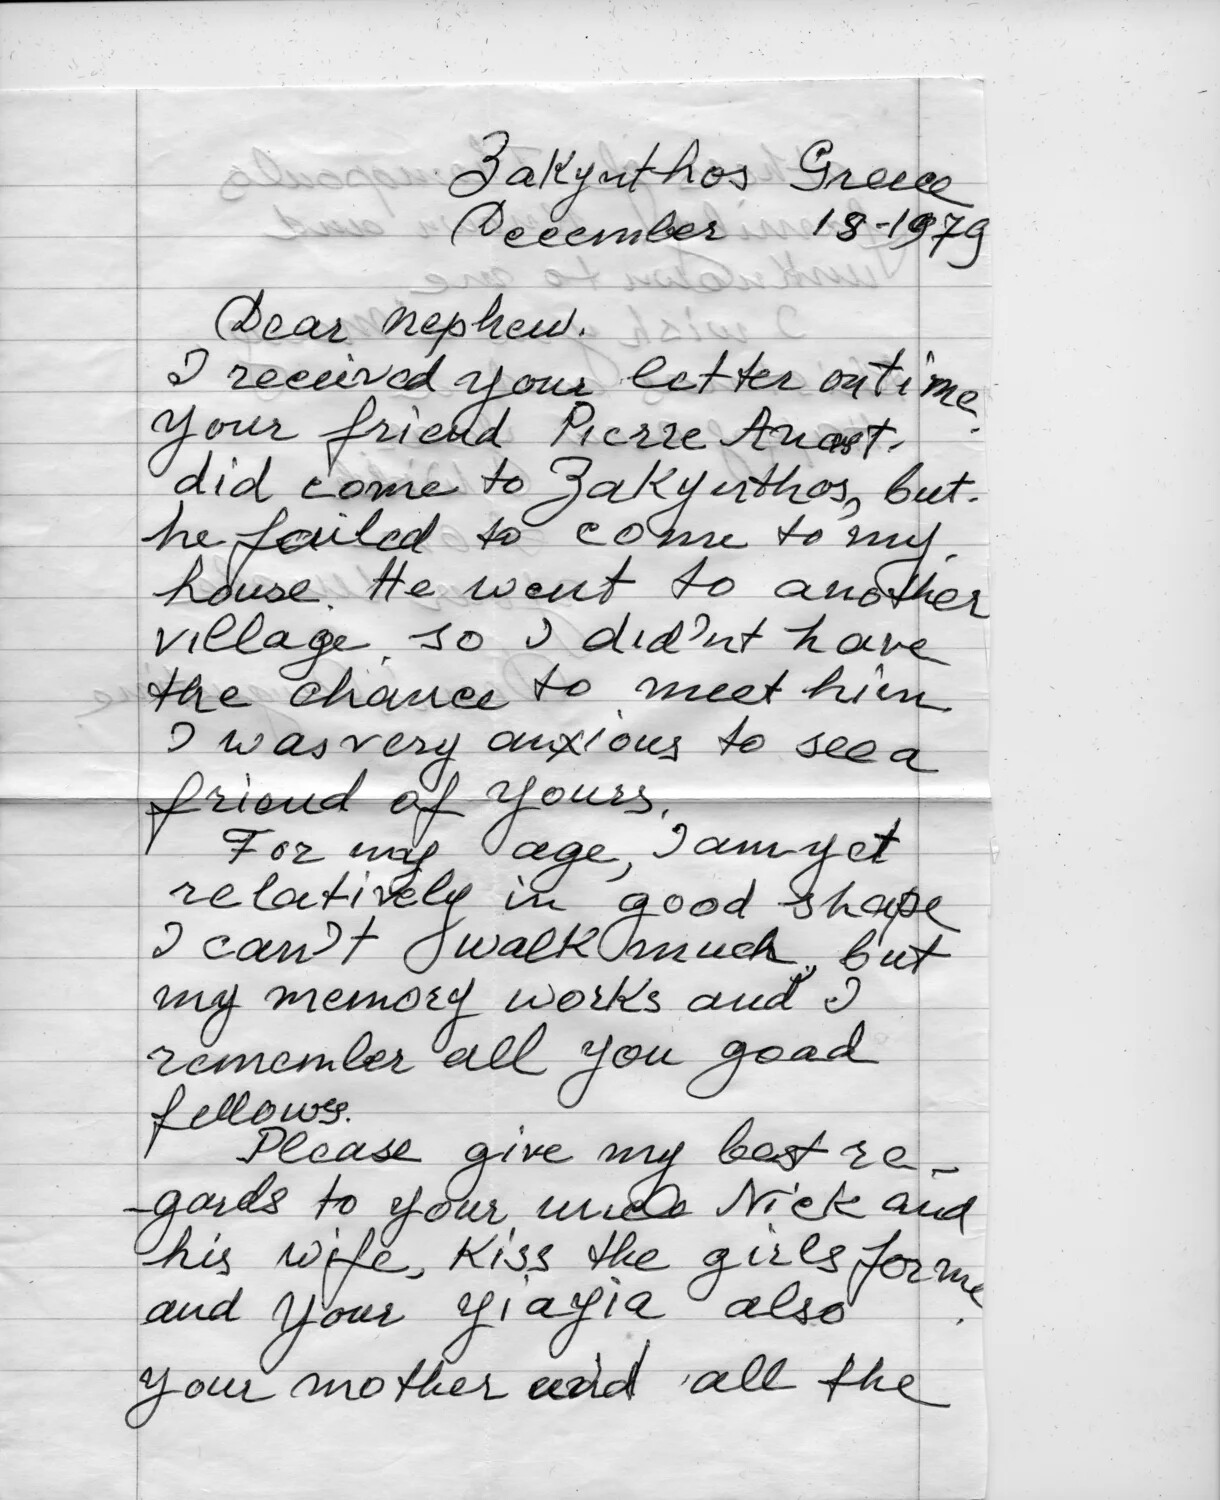 Zakynthos Greece
December 18-1979
Dear nephew.
I received your letter on time.
Your friend Pierre Anast.
did come to Zakynthos, but
he failed to come to my
house. He went to another
village, so I did'nt have
the chance to meet him
I was very anxious to see a
friend of yours.
For my age, I am yet
relatively in good shape
I can't walk much, but
my memory works and I
remember all you good
fellows.
Please give my best re-
-gards to your uncle Nick and
his wife, kiss the girls for me
and your yiayia also.
your mother and all the